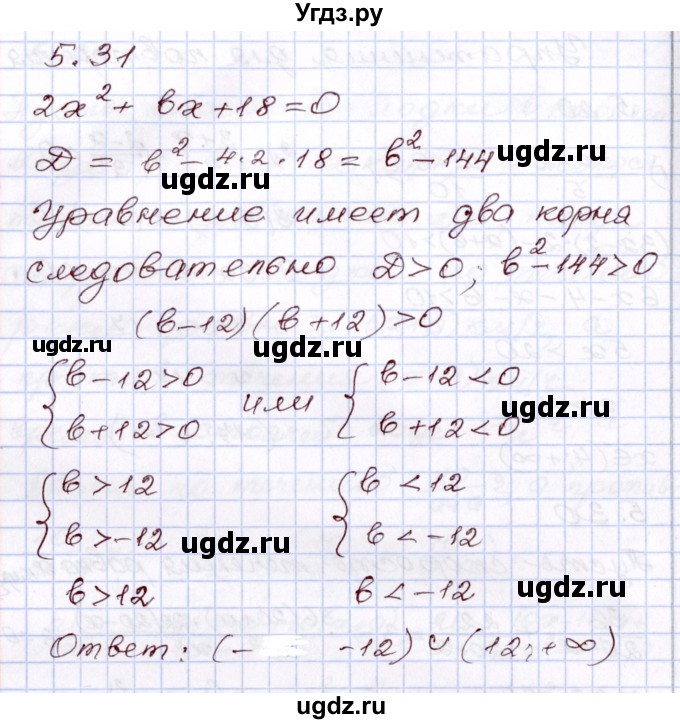 Угдз.ру
5.31
2x² + bx + 18 = 0
D = b² - 4·2·18 = b² - 144
ugdz.ru
ugdz.ru
Уравнение имеет два корня
следовательно D>0; b²-144>0
(b-12)(b+12)>0
ugdz.ru
ugdz.ru
{ b-12>0 или { b-12<0
{ b+12>0 { b+12<0
ugdz.ru
{ b>12 { b<12
{ b>-12 { b<-12
ugdz.ru
b>12 b<-12
ugdz.ru
Ответ: (- -12) ∪ (12; +∞)
ugdz.ru
ugdz.ru